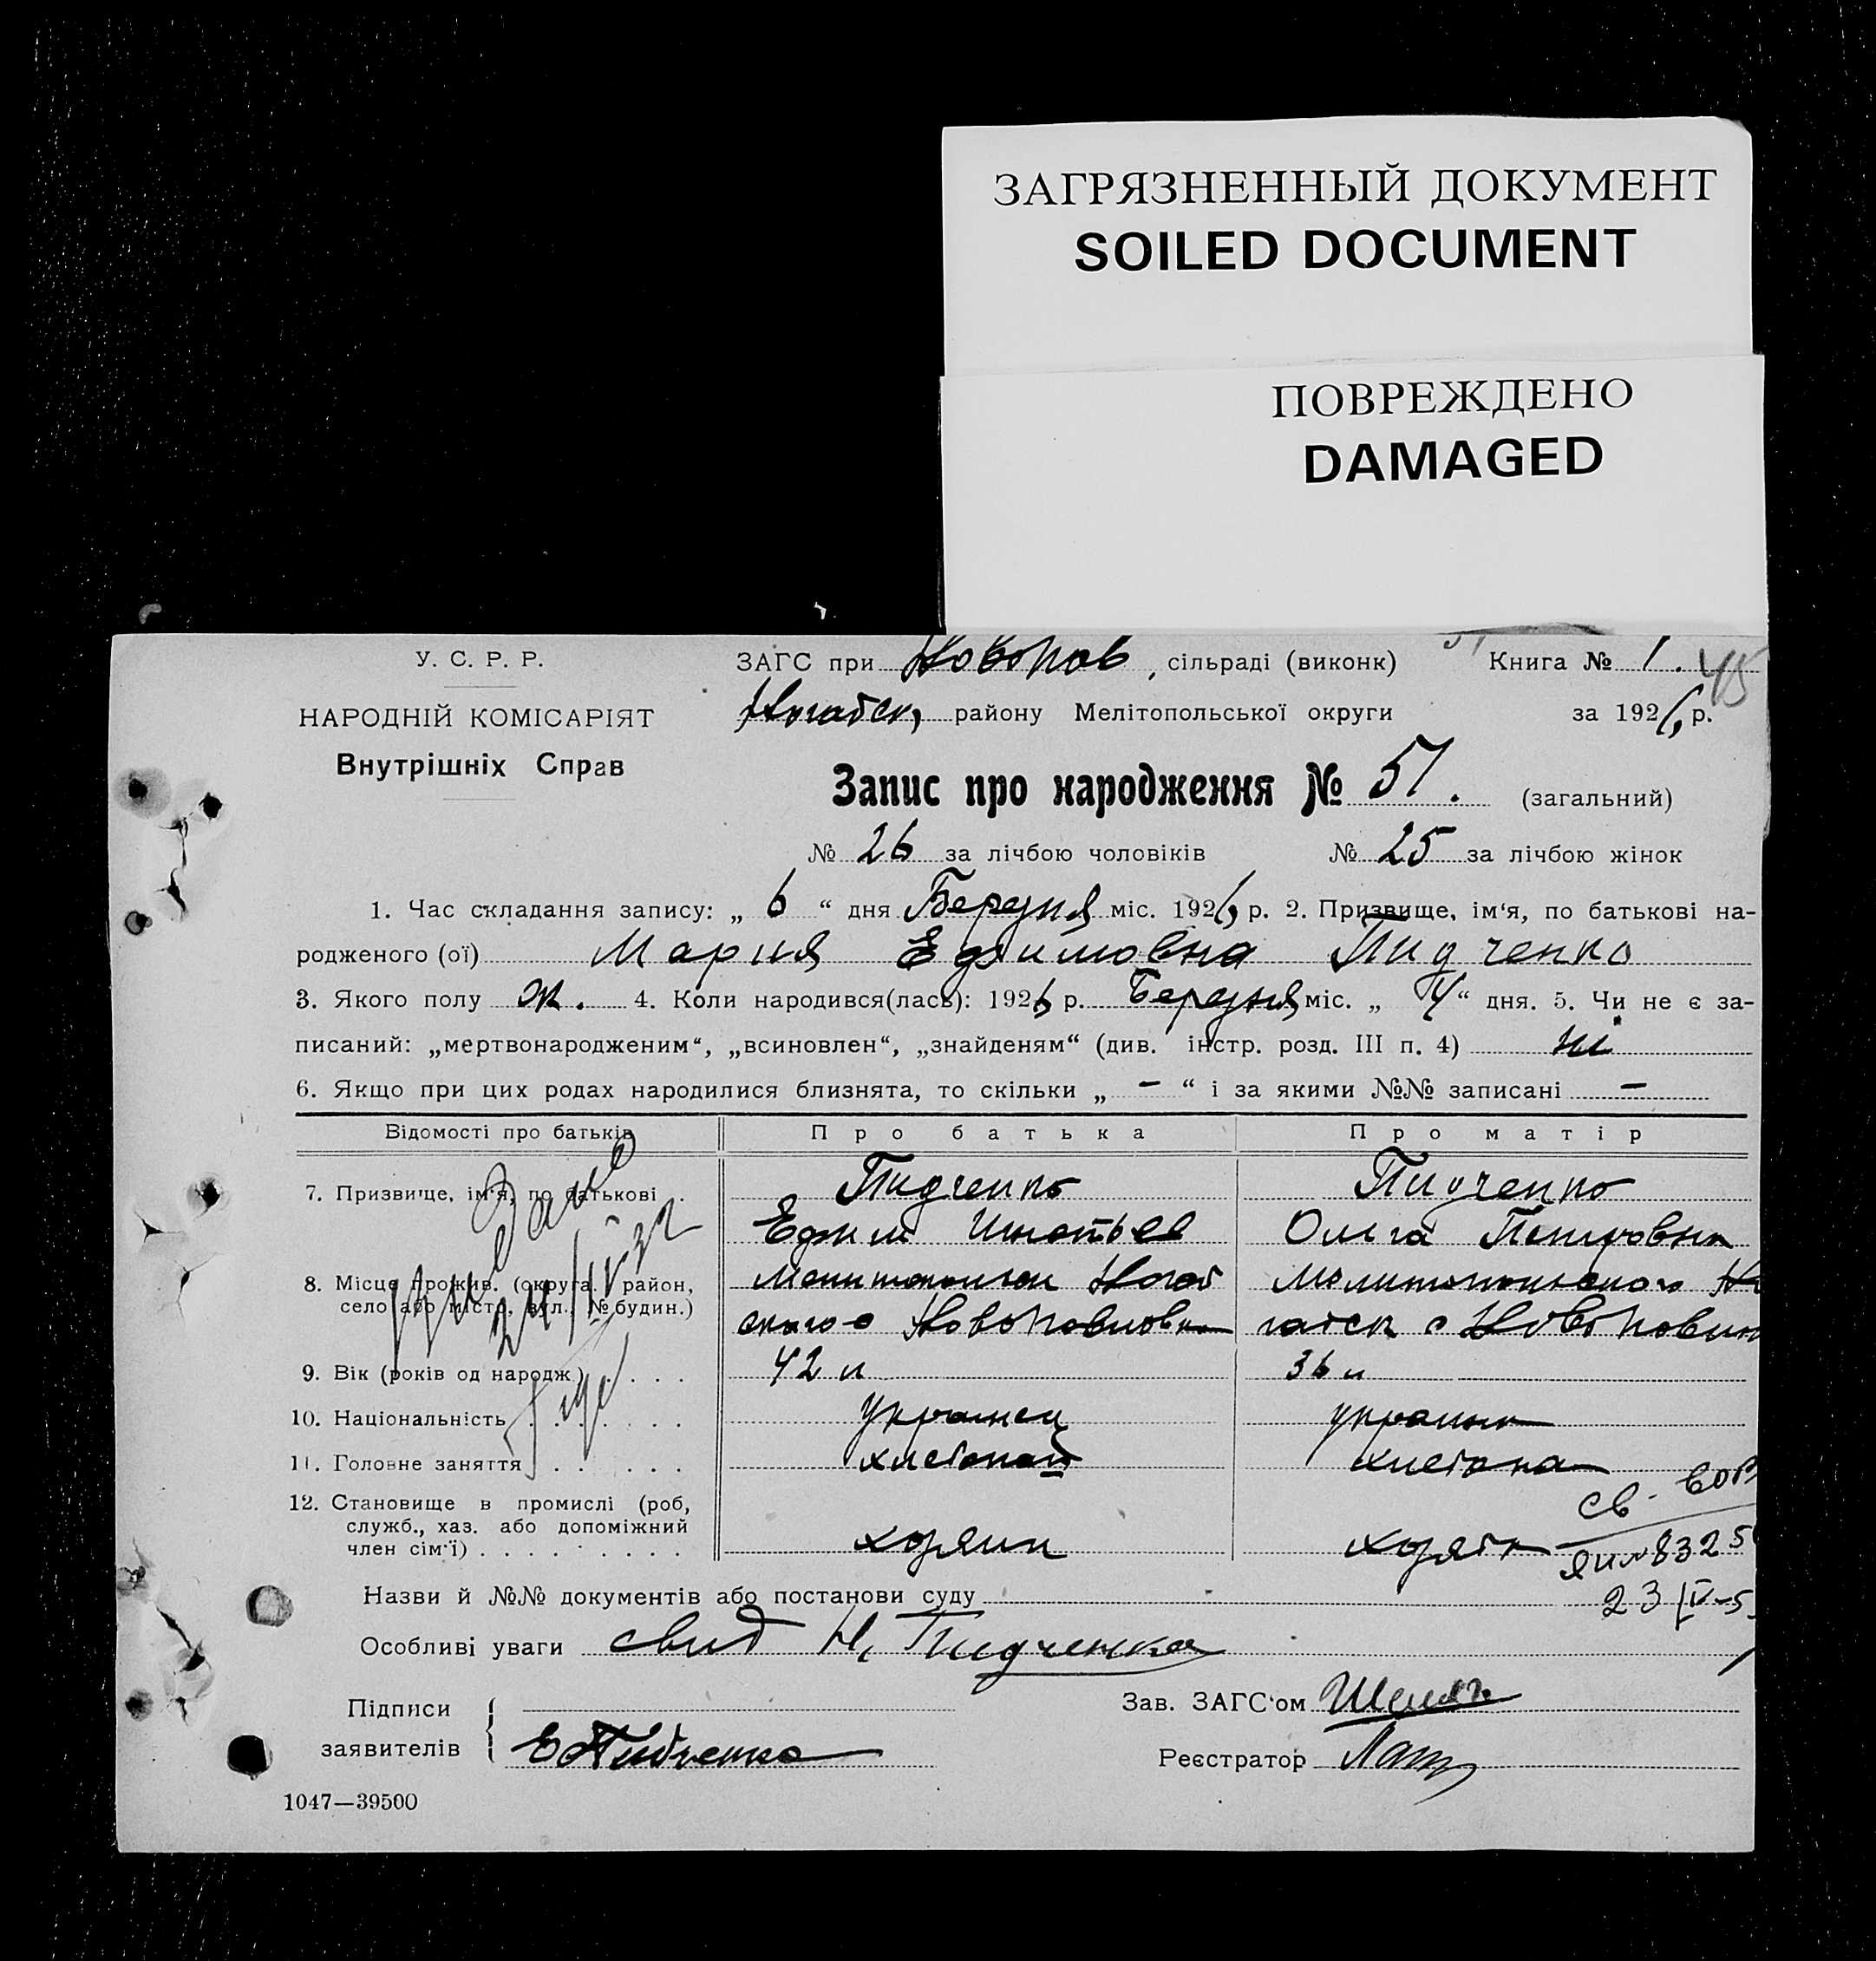 ЗАГРЯЗНЕННЫЙ ДОКУМЕНТ
SOILED DOCUMENT
ПОВРЕЖДЕНО
DAMAGED
У. С. Р. Р.
НАРОДНІЙ КОМІСАРІЯТ
Внутрішніх Справ
ЗАГС при Новопав, сільраді (виконк) Книга № 1. 45
Ногайск, району Мелітопольської округи за 1926, р.
Запис про народження № 51. (загальний)
№ 26 за лічбою чоловіків № 25 за лічбою жінок
1. Час складання запису: „ 6 “ дня Березня міс. 1926, р. 2. Призвище, ім‘я, по батькові на-
родженого (ої) Мария Ефимовна Пидченко
3. Якого полу ж. 4. Коли народився(лась): 1926 р. Березня міс. „ 4 “ дня. 5. Чи не є за-
писаний: „мертвонародженим“, „всиновлен“, „знайденям“ (див. інстр. розд. III п. 4) ні
6. Якщо при цих родах народилися близнята, то скільки „ – “ і за якими №№ записані –
Відомості про батьків Про батька Про матір
7. Призвище, ім‘я, по батькові . Пидченко Пидченко
Ефим Ольга Петровна
8. Місце прожив. (округа, район,
село або місто, вул., № будин.)
9. Вік (років од народж.) . . . . 42 л 36 л
10. Національність . . . . . . украинец украинка
11. Головне заняття . . . . . .
12. Становище в промислі (роб,
служб., хаз. або допоміжний
член сім‘ї) . . . . . . . . . хозяин
23/IV-5
Назви й №№ документів або постанови суду
Особливі уваги свид Н, Пидченка
Підписи
заявителів Е Пидченко
Зав. ЗАГС‘ом
Реєстратор
1047—39500